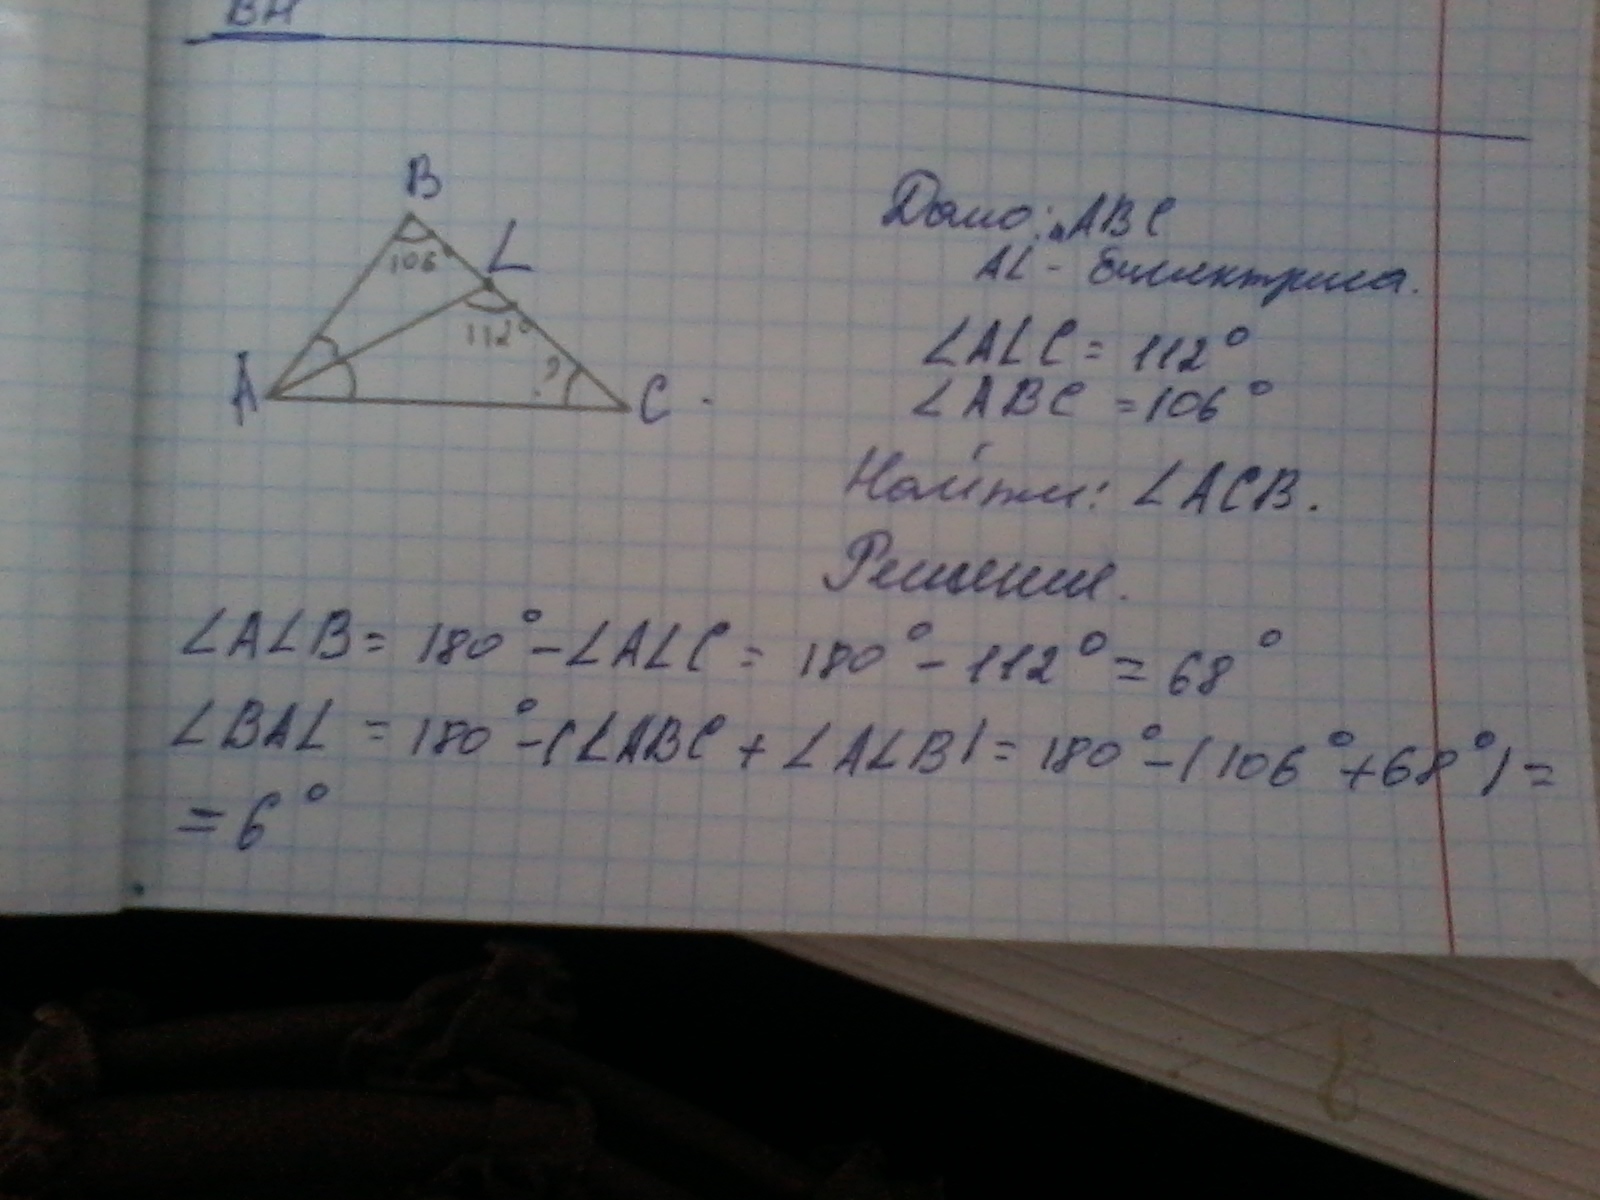 ВН
B
L
106°
112°
?
A
C
Дано: ▵ABC
AL - биссектриса.
∠ALC = 112°
∠ABC = 106°
Найти: ∠ACB.
Решение.
∠ALB = 180° - ∠ALC = 180° - 112° = 68°
∠BAL = 180° - (∠ABC + ∠ALB) = 180° - (106° + 68°) =
= 6°